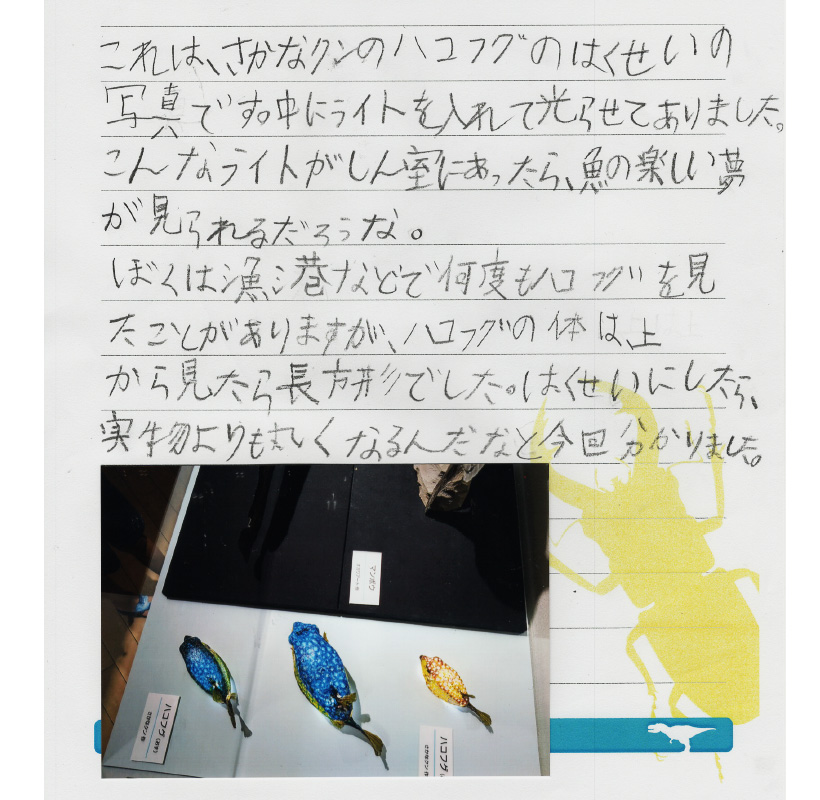 これは、さかなクンのハコフグのはくせいの
写真です。中にライトを入れて光らせてありました。
こんなライトがしん室にあったら、魚の楽しい夢
が見られるだろうな。
ぼくは漁港などで何度もハコフグを見
たことがありますが、ハコフグの体は、上
から見たら長方形でした。はくせいにしたら、
実物よりも丸くなるんだなと今回分かりました。
マンボウ
ハコフグ
さかなクン作
ハコフグ
さかなクン作